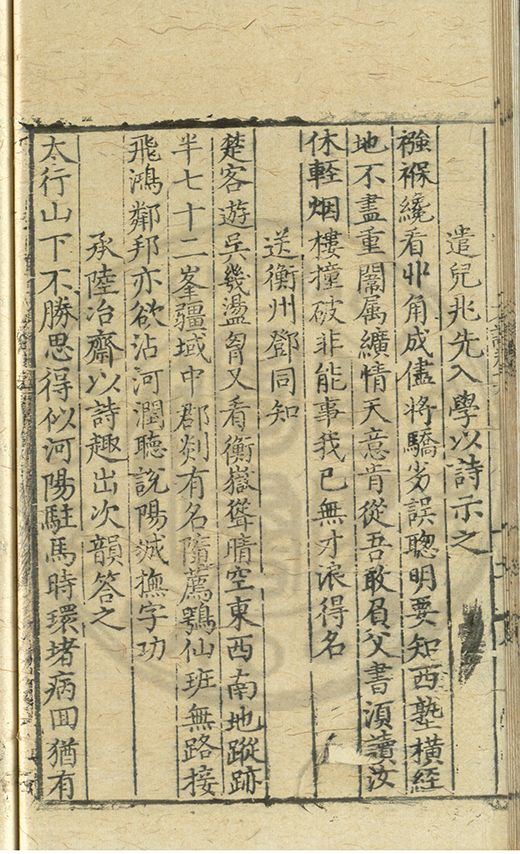 遣兒兆先入學以詩示之
襁褓纔看丱角成儘將驕劣誤聰明要知西塾橫經
地不盡重闈属纊情天意肯從吾敢負父書湏讀汝
休輕烟樓撞破非能事我已無才浪得名
送衡州鄧同知
楚客遊吳幾盪胷又看衡嶽聳晴空東西南地蹤跡
半七十二峯疆域中郡剡有名隋薦鶚仙班無路接
飛鴻鄰邦亦欲沾河潤聽說陽城撫字功
承陸冶齋以詩趣出次韻答之
太行山下不勝思得似河陽駐馬時環堵病回猶有